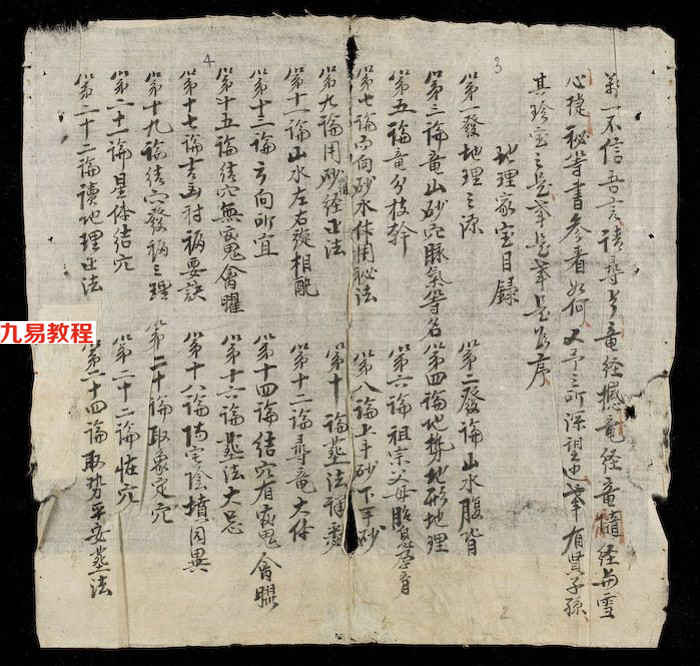 若一不信吾言請尋考竜経撼竜経竜髓経与雪
心経秘等書参看如何又予之所深望也筆有賢子孫
其珍宝之是筆是為序
地理家宝目録
第一發地理之源
第二發論山水腹背
第三論竜山砂穴脉氣等名
第四論地勢地形地理
第五論竜分枝幹
第六論祖宗父母胎息孕育
第七論方向砂水休囚秘法
第八論上手砂下手砂
第九論用砂経正法
第十論葬法
第十一論山水左右旋相配
第十二論尋竜大体
第十三論方向所宜
第十四論結穴有官鬼禽曜
第十五論結穴無官鬼禽曜
第十六論葬法大忌
第十七論吉凶禍福要訣
第十八論陽宅陰墳同異
第十九論結穴發福之理
第二十論取象定穴
第二十一論星体結穴
第二十二論怪穴
第二十二論讀地理正法
第二十四論取勢平安葬法
九易教程
3
4
2